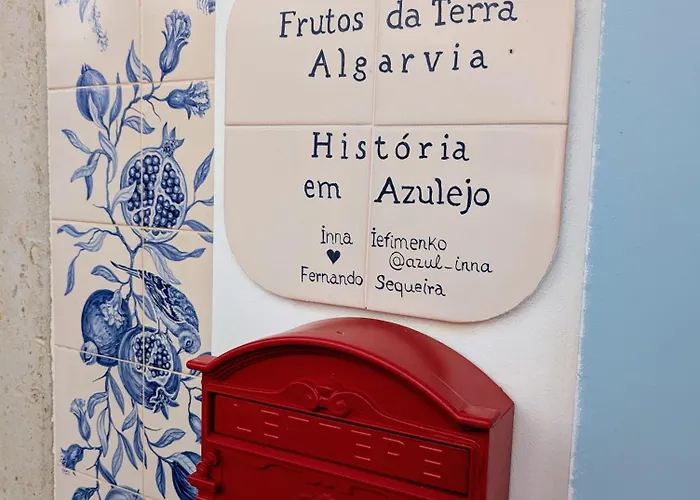 Frutos da Terra
Algarvia
História
em Azulejo
Inna Iefimenko
♥ @azul_inna
Fernando Sequeira
LETTERE